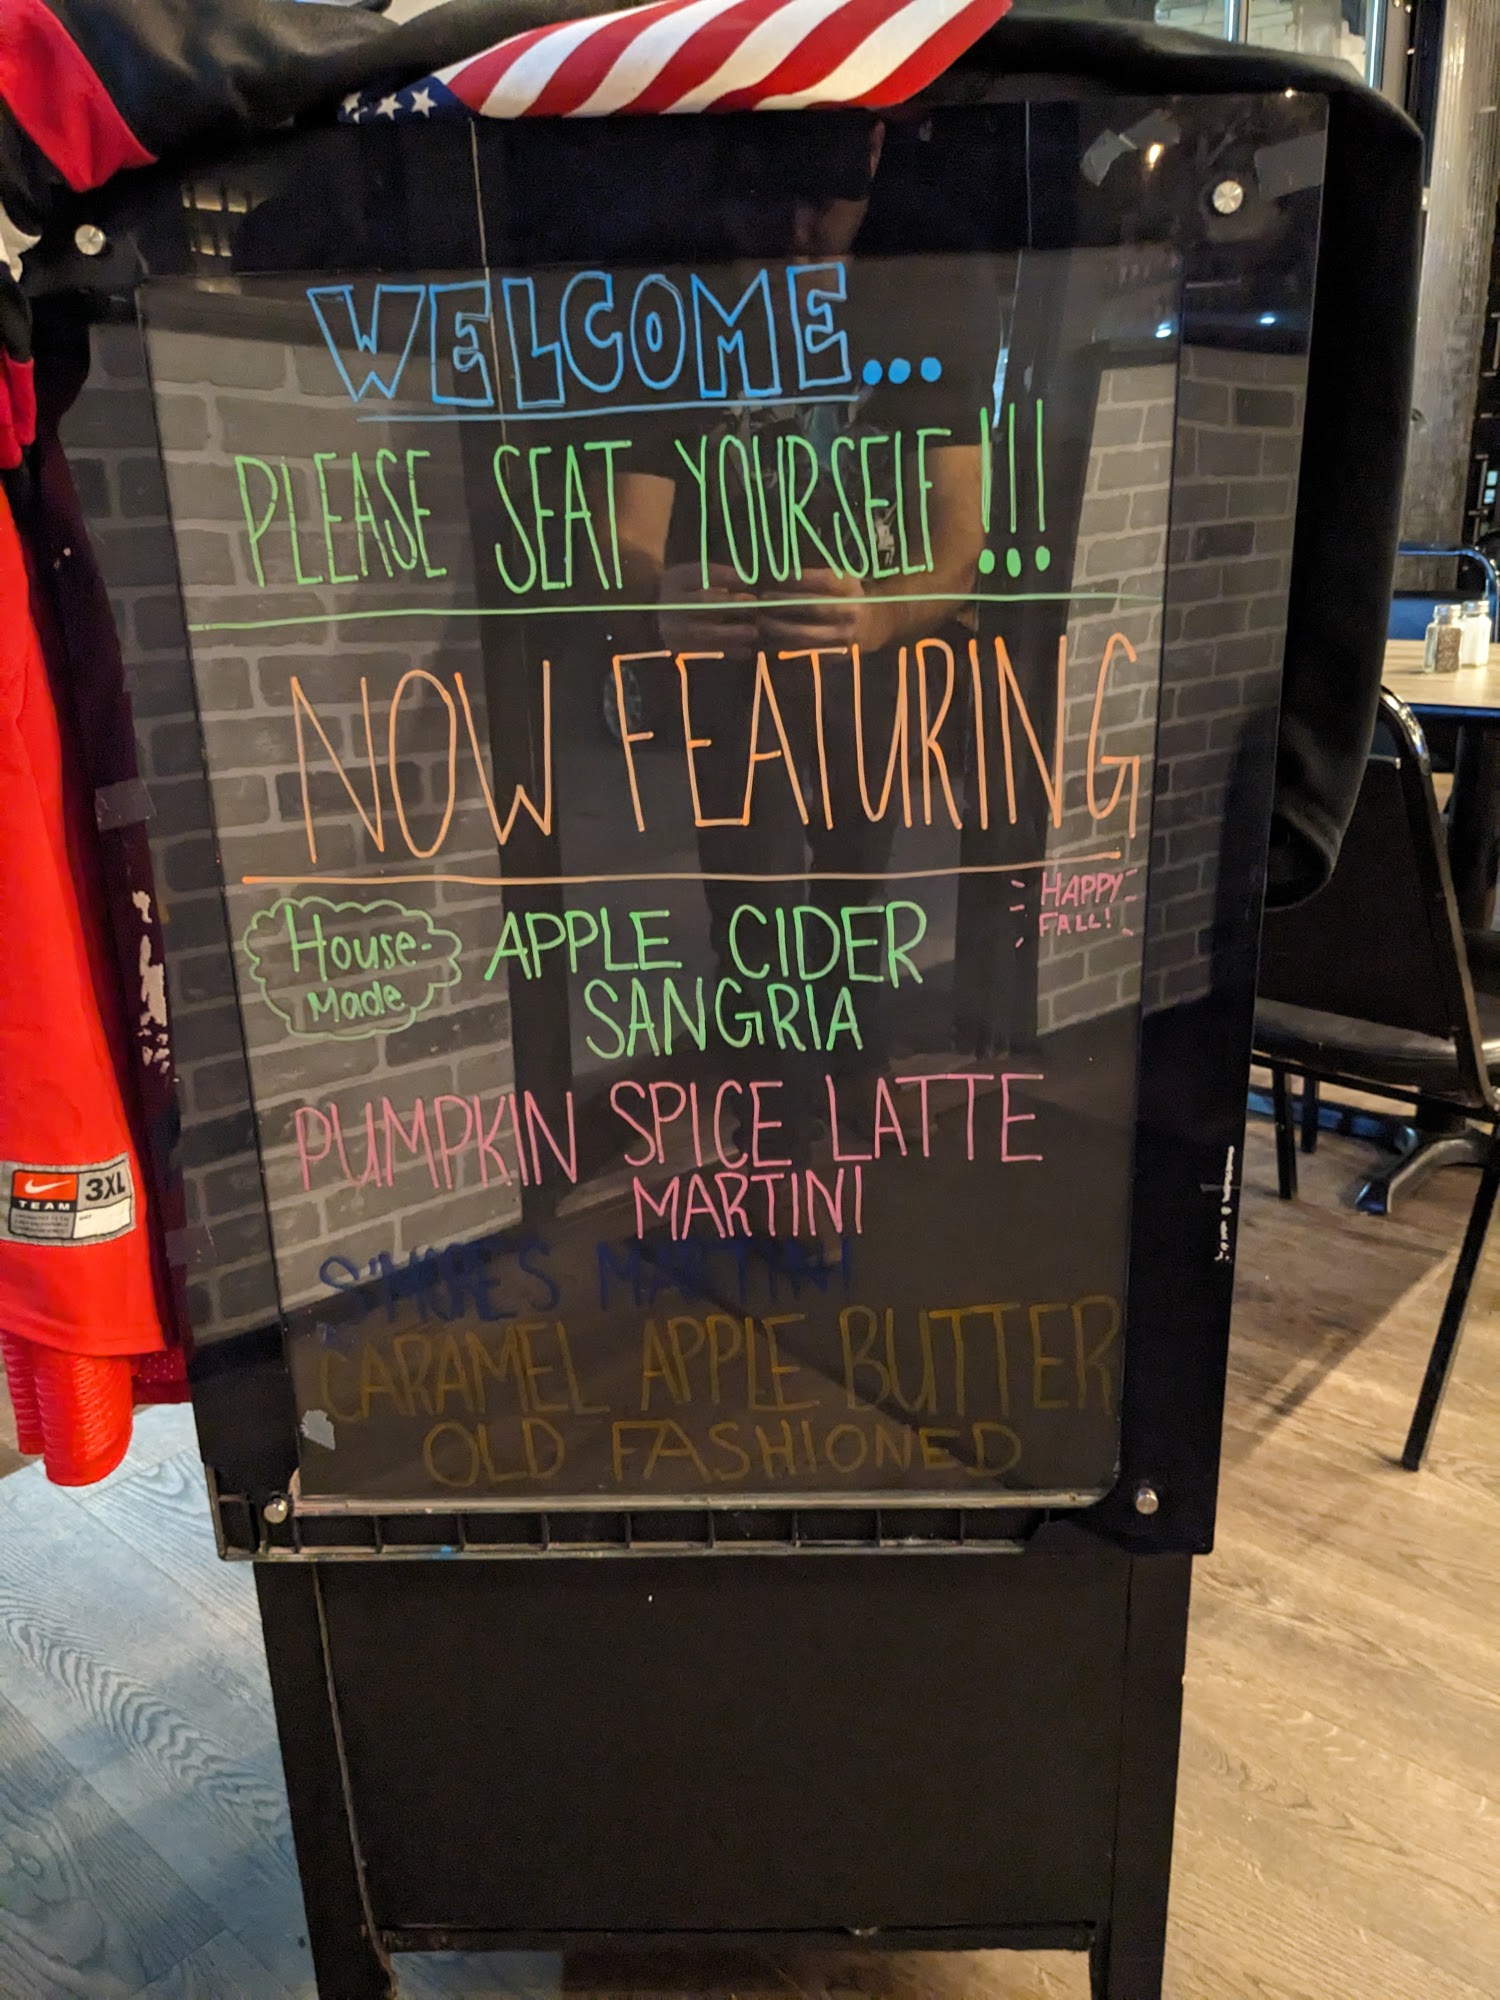 WELCOME...
PLEASE SEAT YOURSELF!!!
NOW FEATURING
HAPPY
FALL!
House-
Made
APPLE CIDER
SANGRIA
PUMPKIN SPICE LATTE
MARTINI
S'MORES MARTINI
CARAMEL APPLE BUTTER
OLD FASHIONED
TEAM
3XL